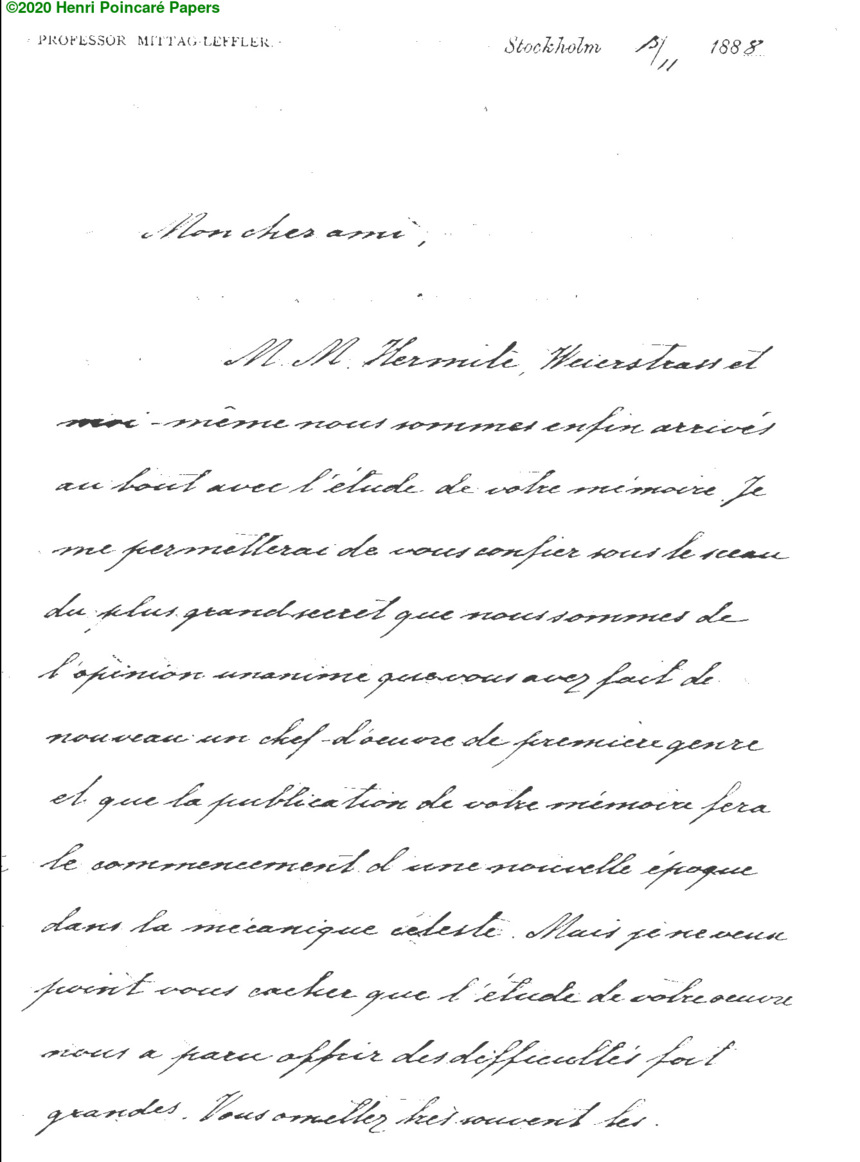 ©2020 Henri Poincaré Papers
PROFESSOR MITTAG-LEFFLER. Stockholm 15/11 1888
Mon cher ami,
M. M. Hermite, Weierstrass et
moi-même nous sommes enfin arrivés
au bout avec l'étude de votre mémoire. Je
me permetterai de vous confier sous le sceau
du plus grand secret que nous sommes de
l'opinion unanime que vous avez fait de
nouveau un chef-d'oeuvre de premiere genre
et que la publication de votre mémoire fera
le commencement d'une nouvelle époque
dans la mécanique céleste. Mais je ne veux
point vous cacher que l'étude de votre oeuvre
nous a paru offrir des difficultés fort
grandes. Vous omettez très souvent les